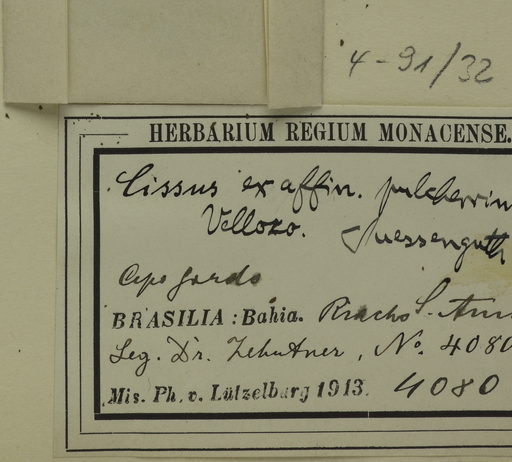 4-91/32
HERBARIUM REGIUM MONACENSE.
Cissus ex affin. pulcherrim
Vellozo. Suessenguth
Cipo gordo
BRASILIA: Bahia. Riacho S. Ann
Leg. Dr. Zehntner, No. 4080
Mis. Ph. v. Lützelburg 1913. 4080